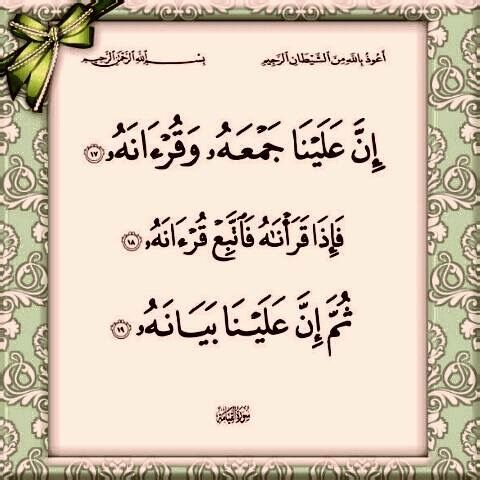 أعوذ بالله من الشيطان الرجيم بسم الله الرحمن الرحيم
إِنَّ عَلَيْنَا جَمْعَهُۥ وَقُرْءَانَهُۥ ١٧
فَإِذَا قَرَأْنَٰهُ فَٱتَّبِعْ قُرْءَانَهُۥ ١٨
ثُمَّ إِنَّ عَلَيْنَا بَيَانَهُۥ ١٩
سورة القيامة